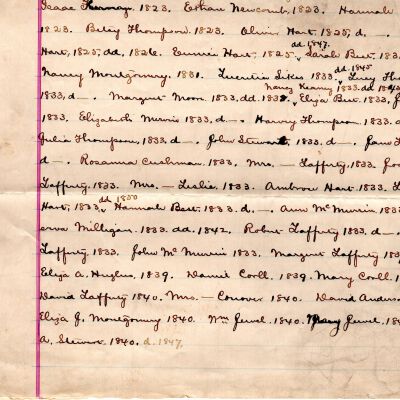 Isaac Thomas, 1823. Esther Newcomb, 1823. Hannah
1823. Betsy Thompson, 1823. Oliver Hart, 1825, d.
dd. 1847.
Hart, 1825, dd, 1826. Eunice Hart, 1825. Sarah Best, 183
dd. 1845
Nancy Montgomery. 1831. Lucretia Sikes 1833. Lucy Th
Nancy Kenny 1833. dd 184
1833, d—. Margret Moon, 1833, dd. 1838. Eliza Best, 1833,
1833, Elizabeth Murris 1833, d—. Harvey Thompson, 1833. d
Julia Thompson, 1833, d—. John Stewart, 1833, d—. Jane
d—. Rosanna Cushman, 1833. Mrs. — Lafferty, 1833.
Lafferty, 1833. Mrs. — Leslie, 1833. Ambrose Hart, 1833.
dd 1850
Hart, 1833, Hannah Best, 1833, d. —. Ann McMurris, 1833
Milligan, 1833. dd. 1842. Robert Lafferty 1833, d—.
Lafferty, 1833. John McMurris 1833. Margret Lafferty 183
Eliza A. Hughes, 1839. Daniel Corll, 1839. Mary Corll, 1
David Lafferty 1840. Mrs. — Conover 1840. David Anders
Eliza J. Montgomery 1840. Wm Jewel, 1840. Mary Jewel, 184
A. Stewart, 1840. d. 1847.